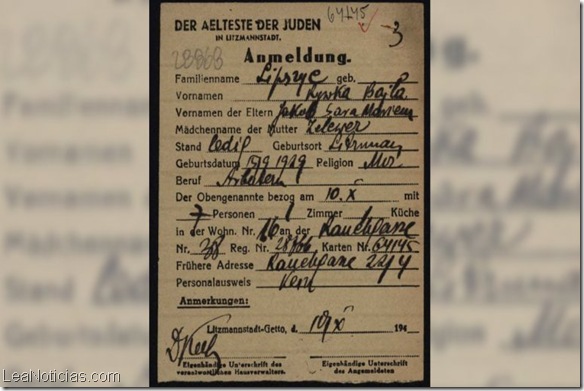 64145
DER AELTESTE DER JUDEN
IN LITZMANNSTADT.
3
Anmeldung.
Familienname Lipszyc geb.
Vornamen Rywka Bajla
Vornamen der Eltern Jakob Sara Mariem
Mädchenname der Mutter Zelewer
Stand ledig Geburtsort Litzman
Geburtsdatum 15/9 1929 Religion Mos.
Beruf Arbeterin
Der Obengenannte bezog am 10.X mit
7 Personen 1 Zimmer 1 Küche
in der Wohn. Nr. 16 an der Rauchgasse
Nr. 38 Reg. Nr. Karten Nr. 64145
Frühere Adresse Rauchgasse
Personalausweis Kein
Anmerkungen:
Litzmannstadt-Getto, d. 194
Eigenhändige Unterschrift des
verantwortlichen Hausverwalters.
Eigenhändige Unterschrift
des Angemeldeten
LeaNoticias.com